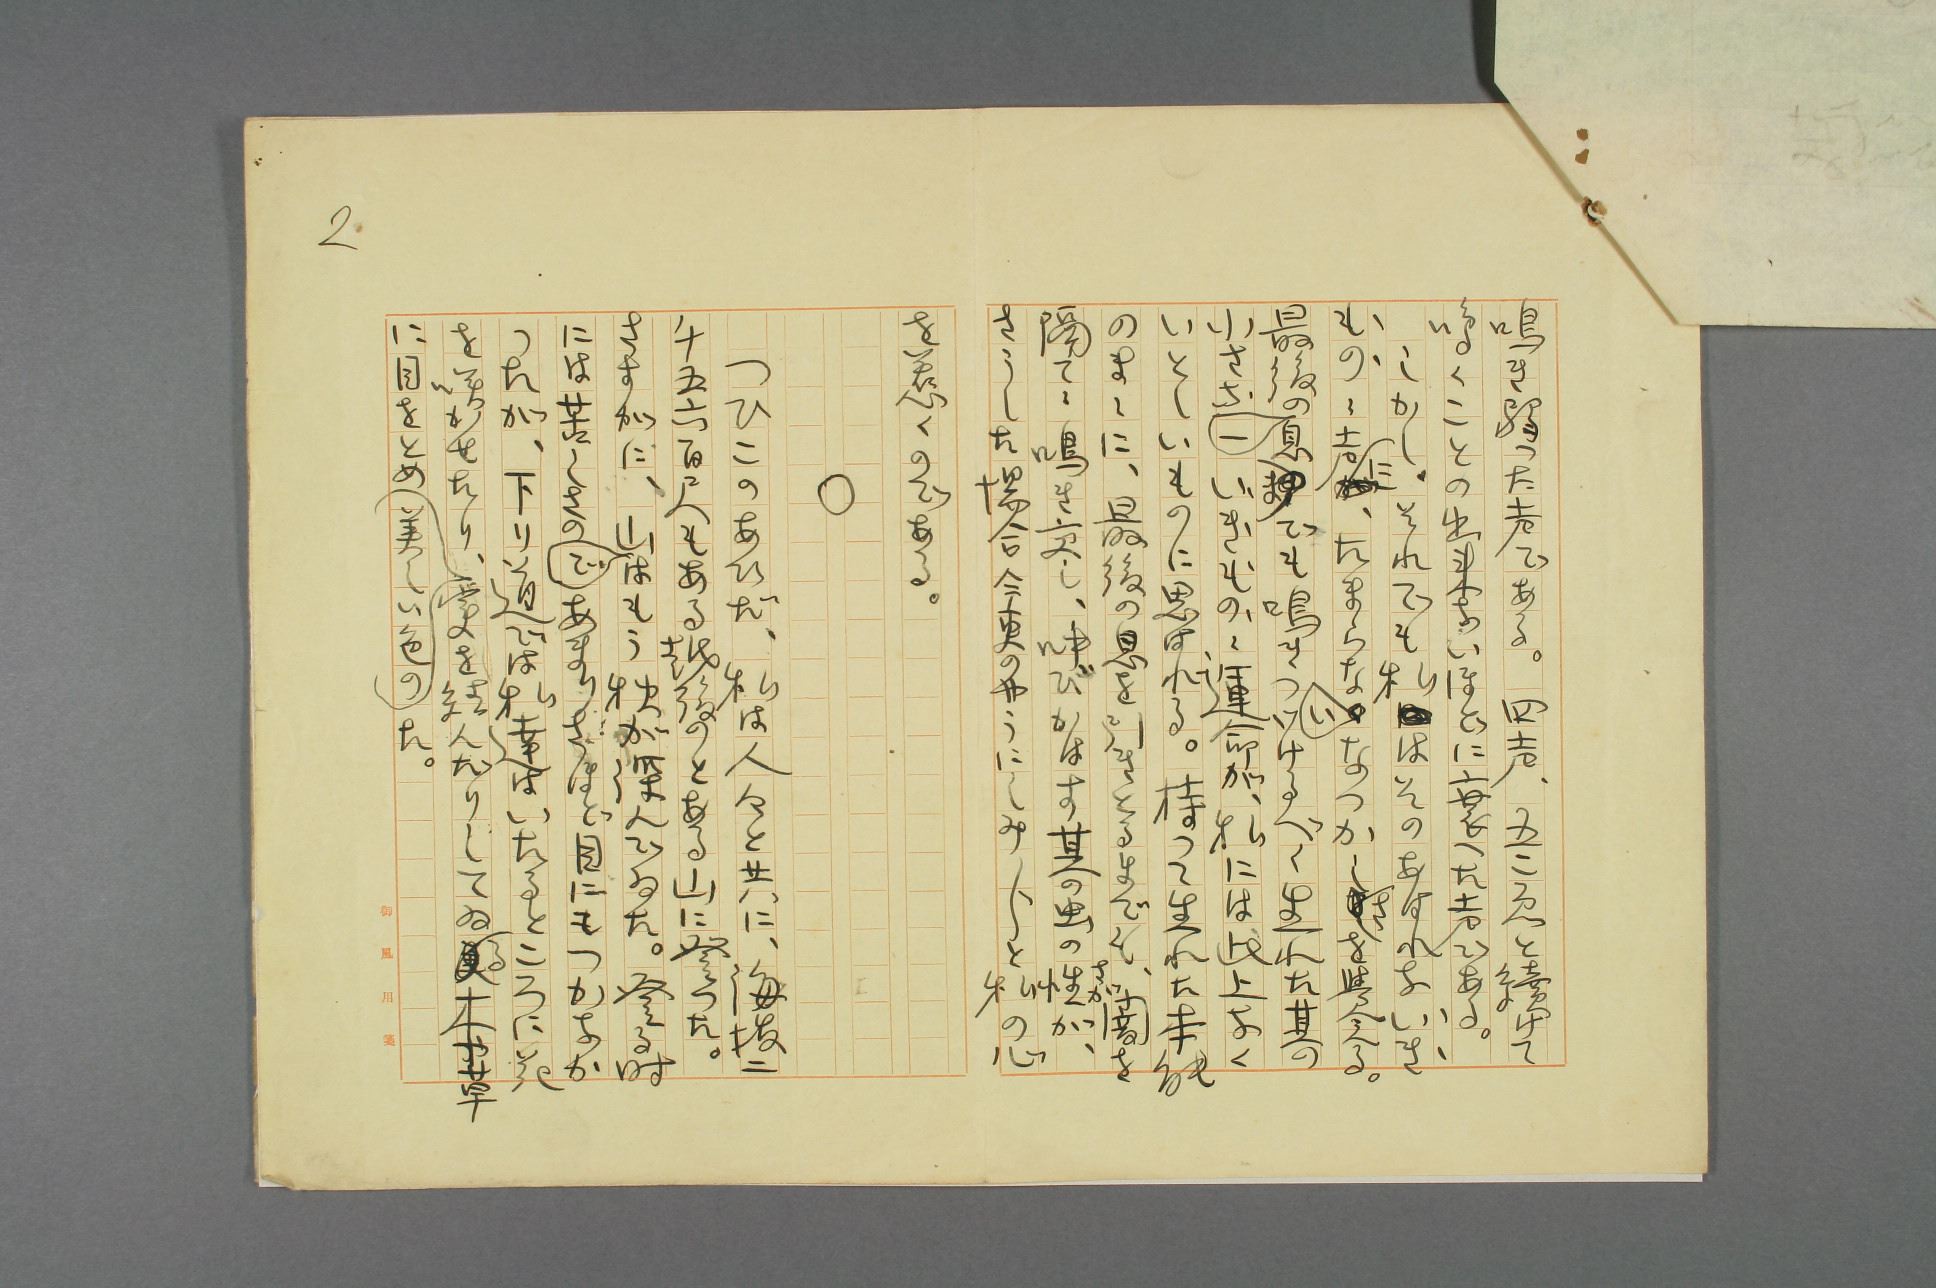 2
鳴き弱つた声である。四声、五こゑと続けて
鳴くことの出来ないほどに衰へた声である。
しかし、それでも私はそのあはれないき
もの丶声に、たまらないなつかしさを覚える。
最後の息までも鳴きつゞけるべく生れた其の
小さないきもの丶運命が、私には此上なく
いとしいものに思はれる。持つて生れた本能
のま丶に、最後の息を引きとるまで、闇を
隔て丶鳴き交し、呼びかはす其の虫の性が、
さうした場合今更のやうにしみ〴〵と私の心
を惹くのである。
○
つひこのあひだ、私は人々と共に、海抜二
千五六百尺もある越後のとある山に登つた。
さすがに、山はもう秋が深んでゐた。登る時
には苦しさのであまりさほど目にもつかなか
つたが、下り道では私達はいたるところに花
を咲かせたり、実を結んだりしてゐる木草
に目をとめ美しい色のた。
御風用箋